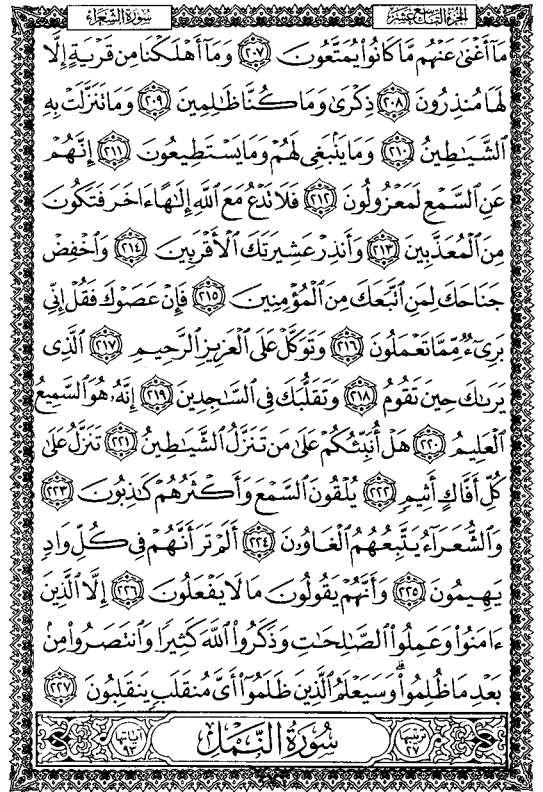 سُورَةُ الشُّعَرَاءِ
الجُزءُ التَّاسِعَ عَشَرَ
مَآ أَغْنَىٰ عَنْهُم مَّا كَانُوا۟ يُمَتَّعُونَ ٢٠٧ وَمَآ أَهْلَكْنَا مِن قَرْيَةٍ إِلَّا
لَهَا مُنذِرُونَ ٢٠٨ ذِكْرَىٰ وَمَا كُنَّا ظَٰلِمِينَ ٢٠٩ وَمَا تَنَزَّلَتْ بِهِ
ٱلشَّيَٰطِينُ ٢١٠ وَمَا يَنۢبَغِى لَهُمْ وَمَا يَسْتَطِيعُونَ ٢١١ إِنَّهُمْ
عَنِ ٱلسَّمْعِ لَمَعْزُولُونَ ٢١٢ فَلَا تَدْعُ مَعَ ٱللَّهِ إِلَٰهًا ءَاخَرَ فَتَكُونَ
مِنَ ٱلْمُعَذَّبِينَ ٢١٣ وَأَنذِرْ عَشِيرَتَكَ ٱلْأَقْرَبِينَ ٢١٤ وَٱخْفِضْ
جَنَاحَكَ لِمَنِ ٱتَّبَعَكَ مِنَ ٱلْمُؤْمِنِينَ ٢١٥ فَإِنْ عَصَوْكَ فَقُلْ إِنِّى
بَرِىٓءٌ مِّمَّا تَعْمَلُونَ ٢١٦ وَتَوَكَّلْ عَلَى ٱلْعَزِيزِ ٱلرَّحِيمِ ٢١٧ ٱلَّذِى
يَرَىٰكَ حِينَ تَقُومُ ٢١٨ وَتَقَلُّبَكَ فِى ٱلسَّٰجِدِينَ ٢١٩ إِنَّهُۥ هُوَ ٱلسَّمِيعُ
ٱلْعَلِيمُ ٢٢٠ هَلْ أُنَبِّئُكُمْ عَلَىٰ مَن تَنَزَّلُ ٱلشَّيَٰطِينُ ٢٢١ تَنَزَّلُ عَلَىٰ
كُلِّ أَفَّاكٍ أَثِيمٍ ٢٢٢ يُلْقُونَ ٱلسَّمْعَ وَأَكْثَرُهُمْ كَٰذِبُونَ ٢٢٣
وَٱلشُّعَرَآءُ يَتَّبِعُهُمُ ٱلْغَاوُۥنَ ٢٢٤ أَلَمْ تَرَ أَنَّهُمْ فِى كُلِّ وَادٍ
يَهِيمُونَ ٢٢٥ وَأَنَّهُمْ يَقُولُونَ مَا لَا يَفْعَلُونَ ٢٢٦ إِلَّا ٱلَّذِينَ
ءَامَنُوا۟ وَعَمِلُوا۟ ٱلصَّٰلِحَٰتِ وَذَكَرُوا۟ ٱللَّهَ كَثِيرًا وَٱنتَصَرُوا۟ مِنۢ
بَعْدِ مَا ظُلِمُوا۟ ۗ وَسَيَعْلَمُ ٱلَّذِينَ ظَلَمُوٓا۟ أَىَّ مُنقَلَبٍ يَنقَلِبُونَ ٢٢٧
ترتيبها ٢٧ سُورَةُ النَّمْلِ آياتها ٩٣